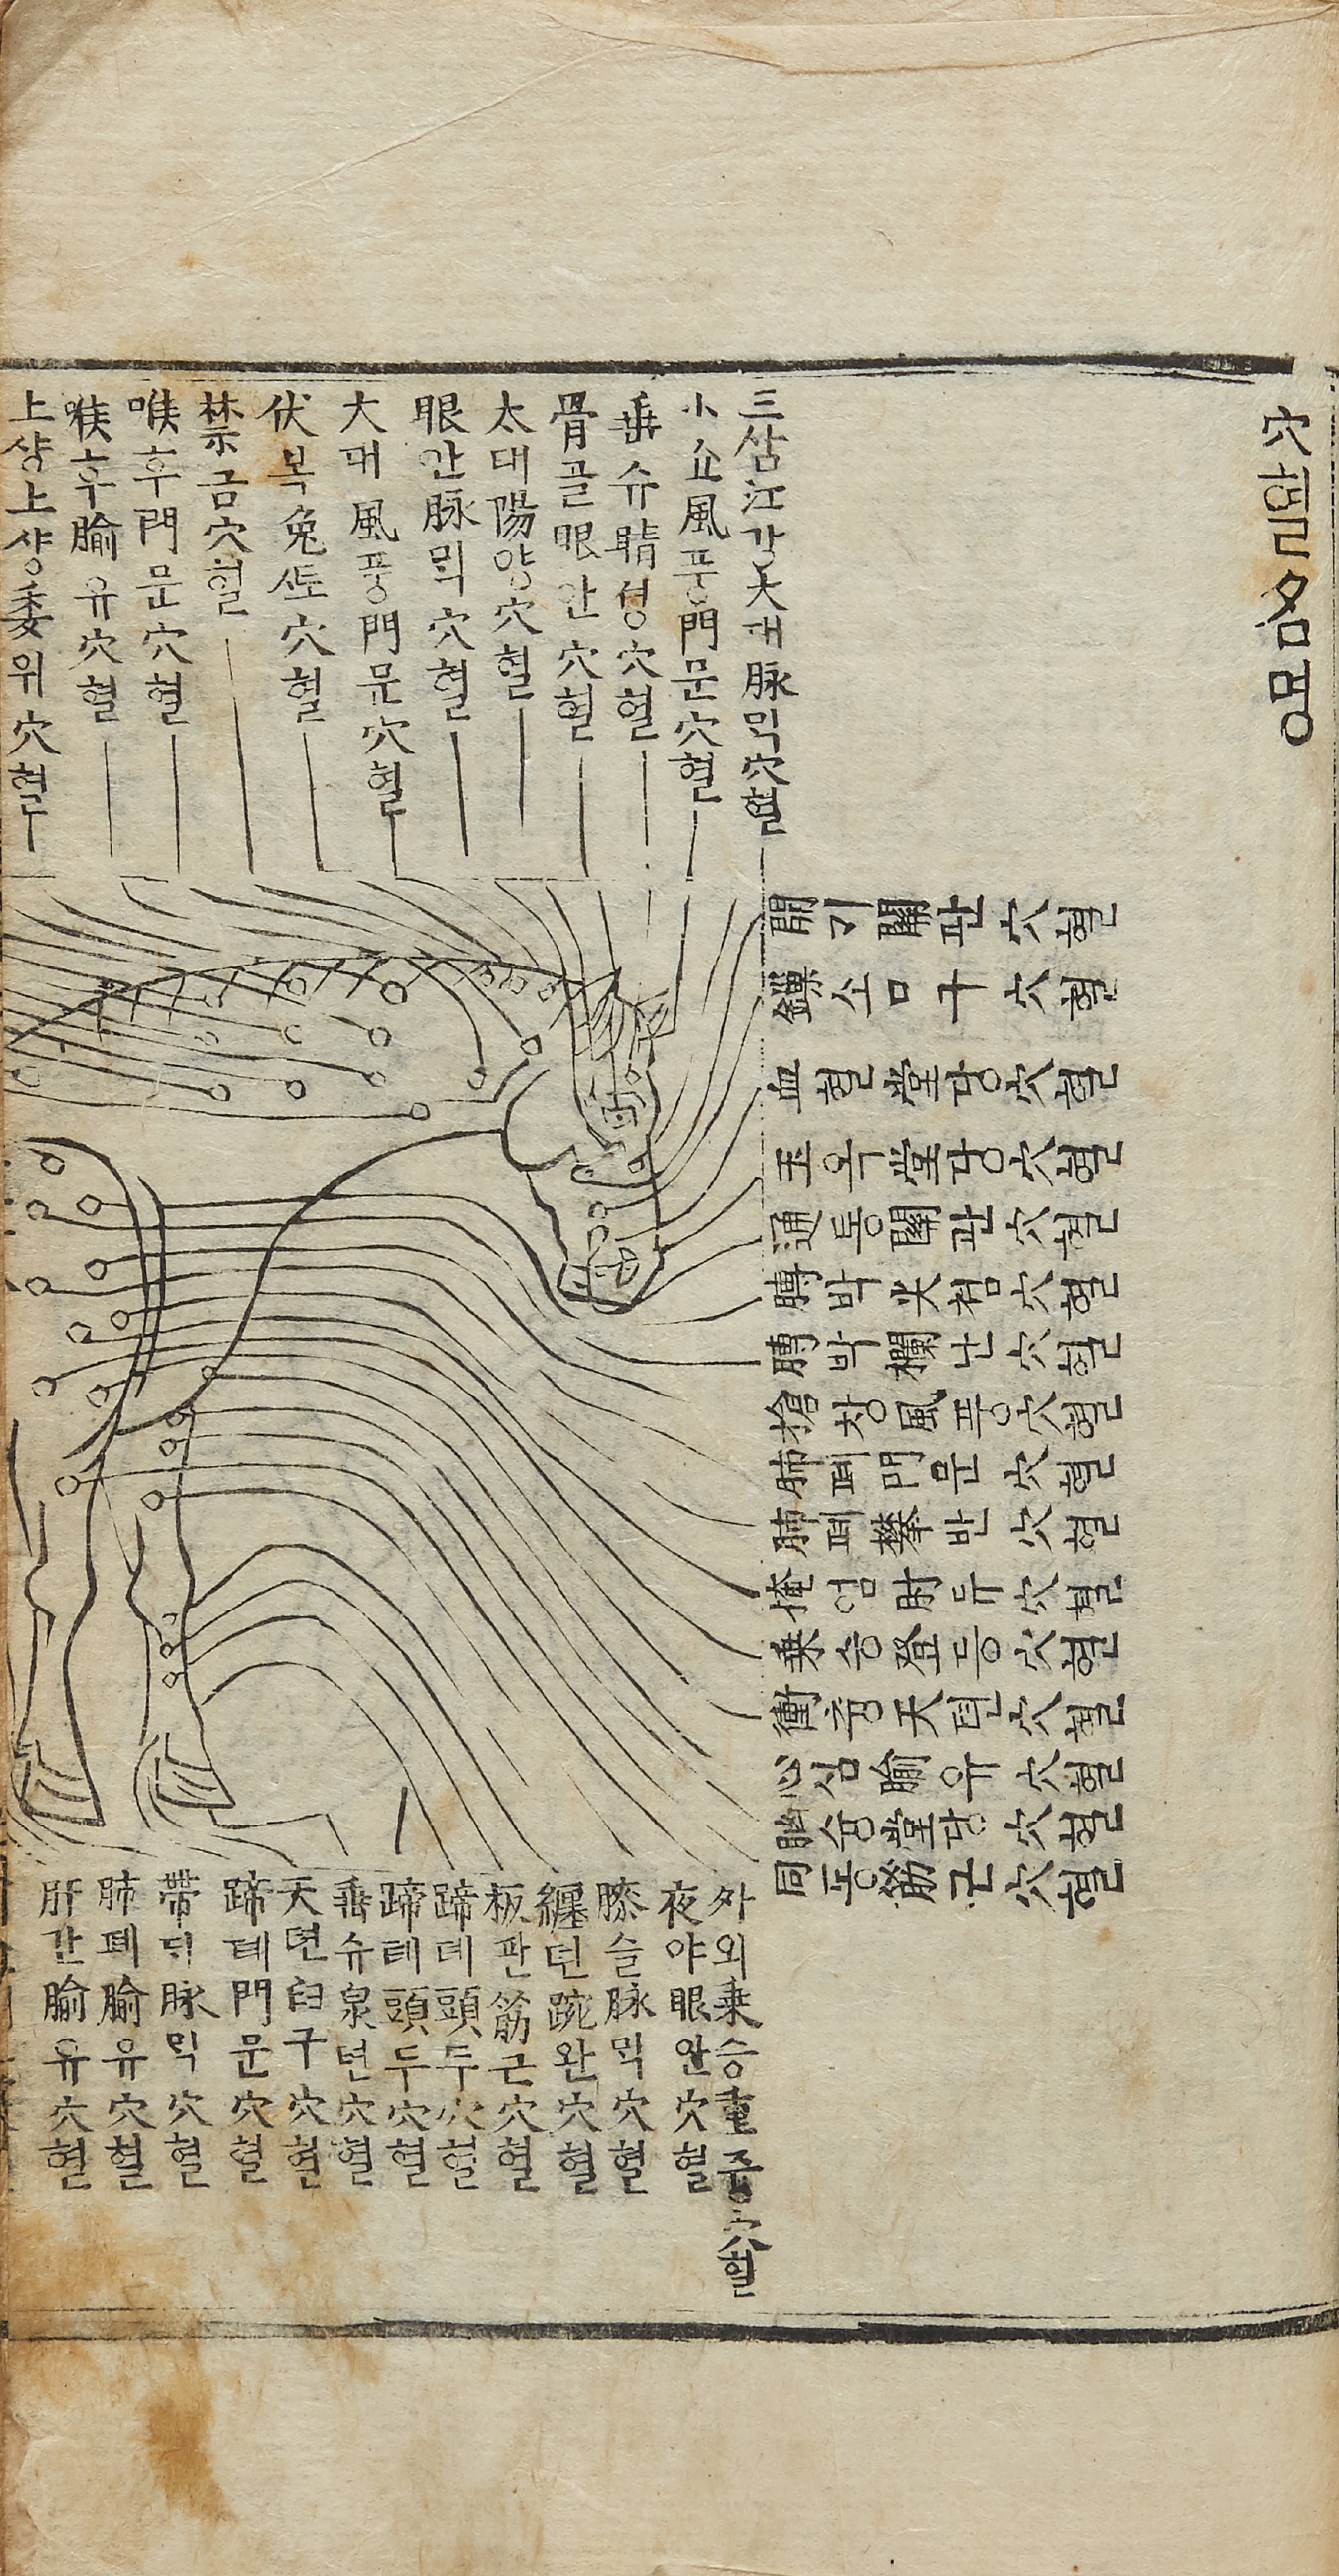 穴혈名명
三삼江강大대脉믹穴혈
小쇼風풍門문穴혈
垂슈睛쳥穴혈
骨골眼안穴혈
太태陽양穴혈
眼안脉믹穴혈
大대風풍門문穴혈
伏복兎토穴혈
禁금穴혈
喉후門문穴혈
喉후腧유穴혈
上샹上샹委위穴혈
開기關관穴혈
소口구穴혈
血혈堂당穴혈
玉옥堂당穴혈
通통關관穴혈
膊박尖쳠穴혈
膊박欄난穴혈
搶창風풍穴혈
肺폐門문穴혈
肺폐攀반穴혈
掩엄肘듀穴혈
乗승登등穴혈
衝츙天텬穴혈
心심腧유穴혈
胸흉堂당穴혈
同동筋근穴혈
外외乗승重즁穴혈
夜야眼안穴혈
膝슬脉믹穴혈
纏뎐踠완穴혈
板판筋근穴혈
蹄뎨頭두穴혈
蹄톄頭두穴혈
垂슈泉텬穴혈
天텬臼구穴혈
蹄톄門문穴혈
帶ᄃᆡ脉믹穴혈
肺폐腧유穴혈
肝간腧유穴혈